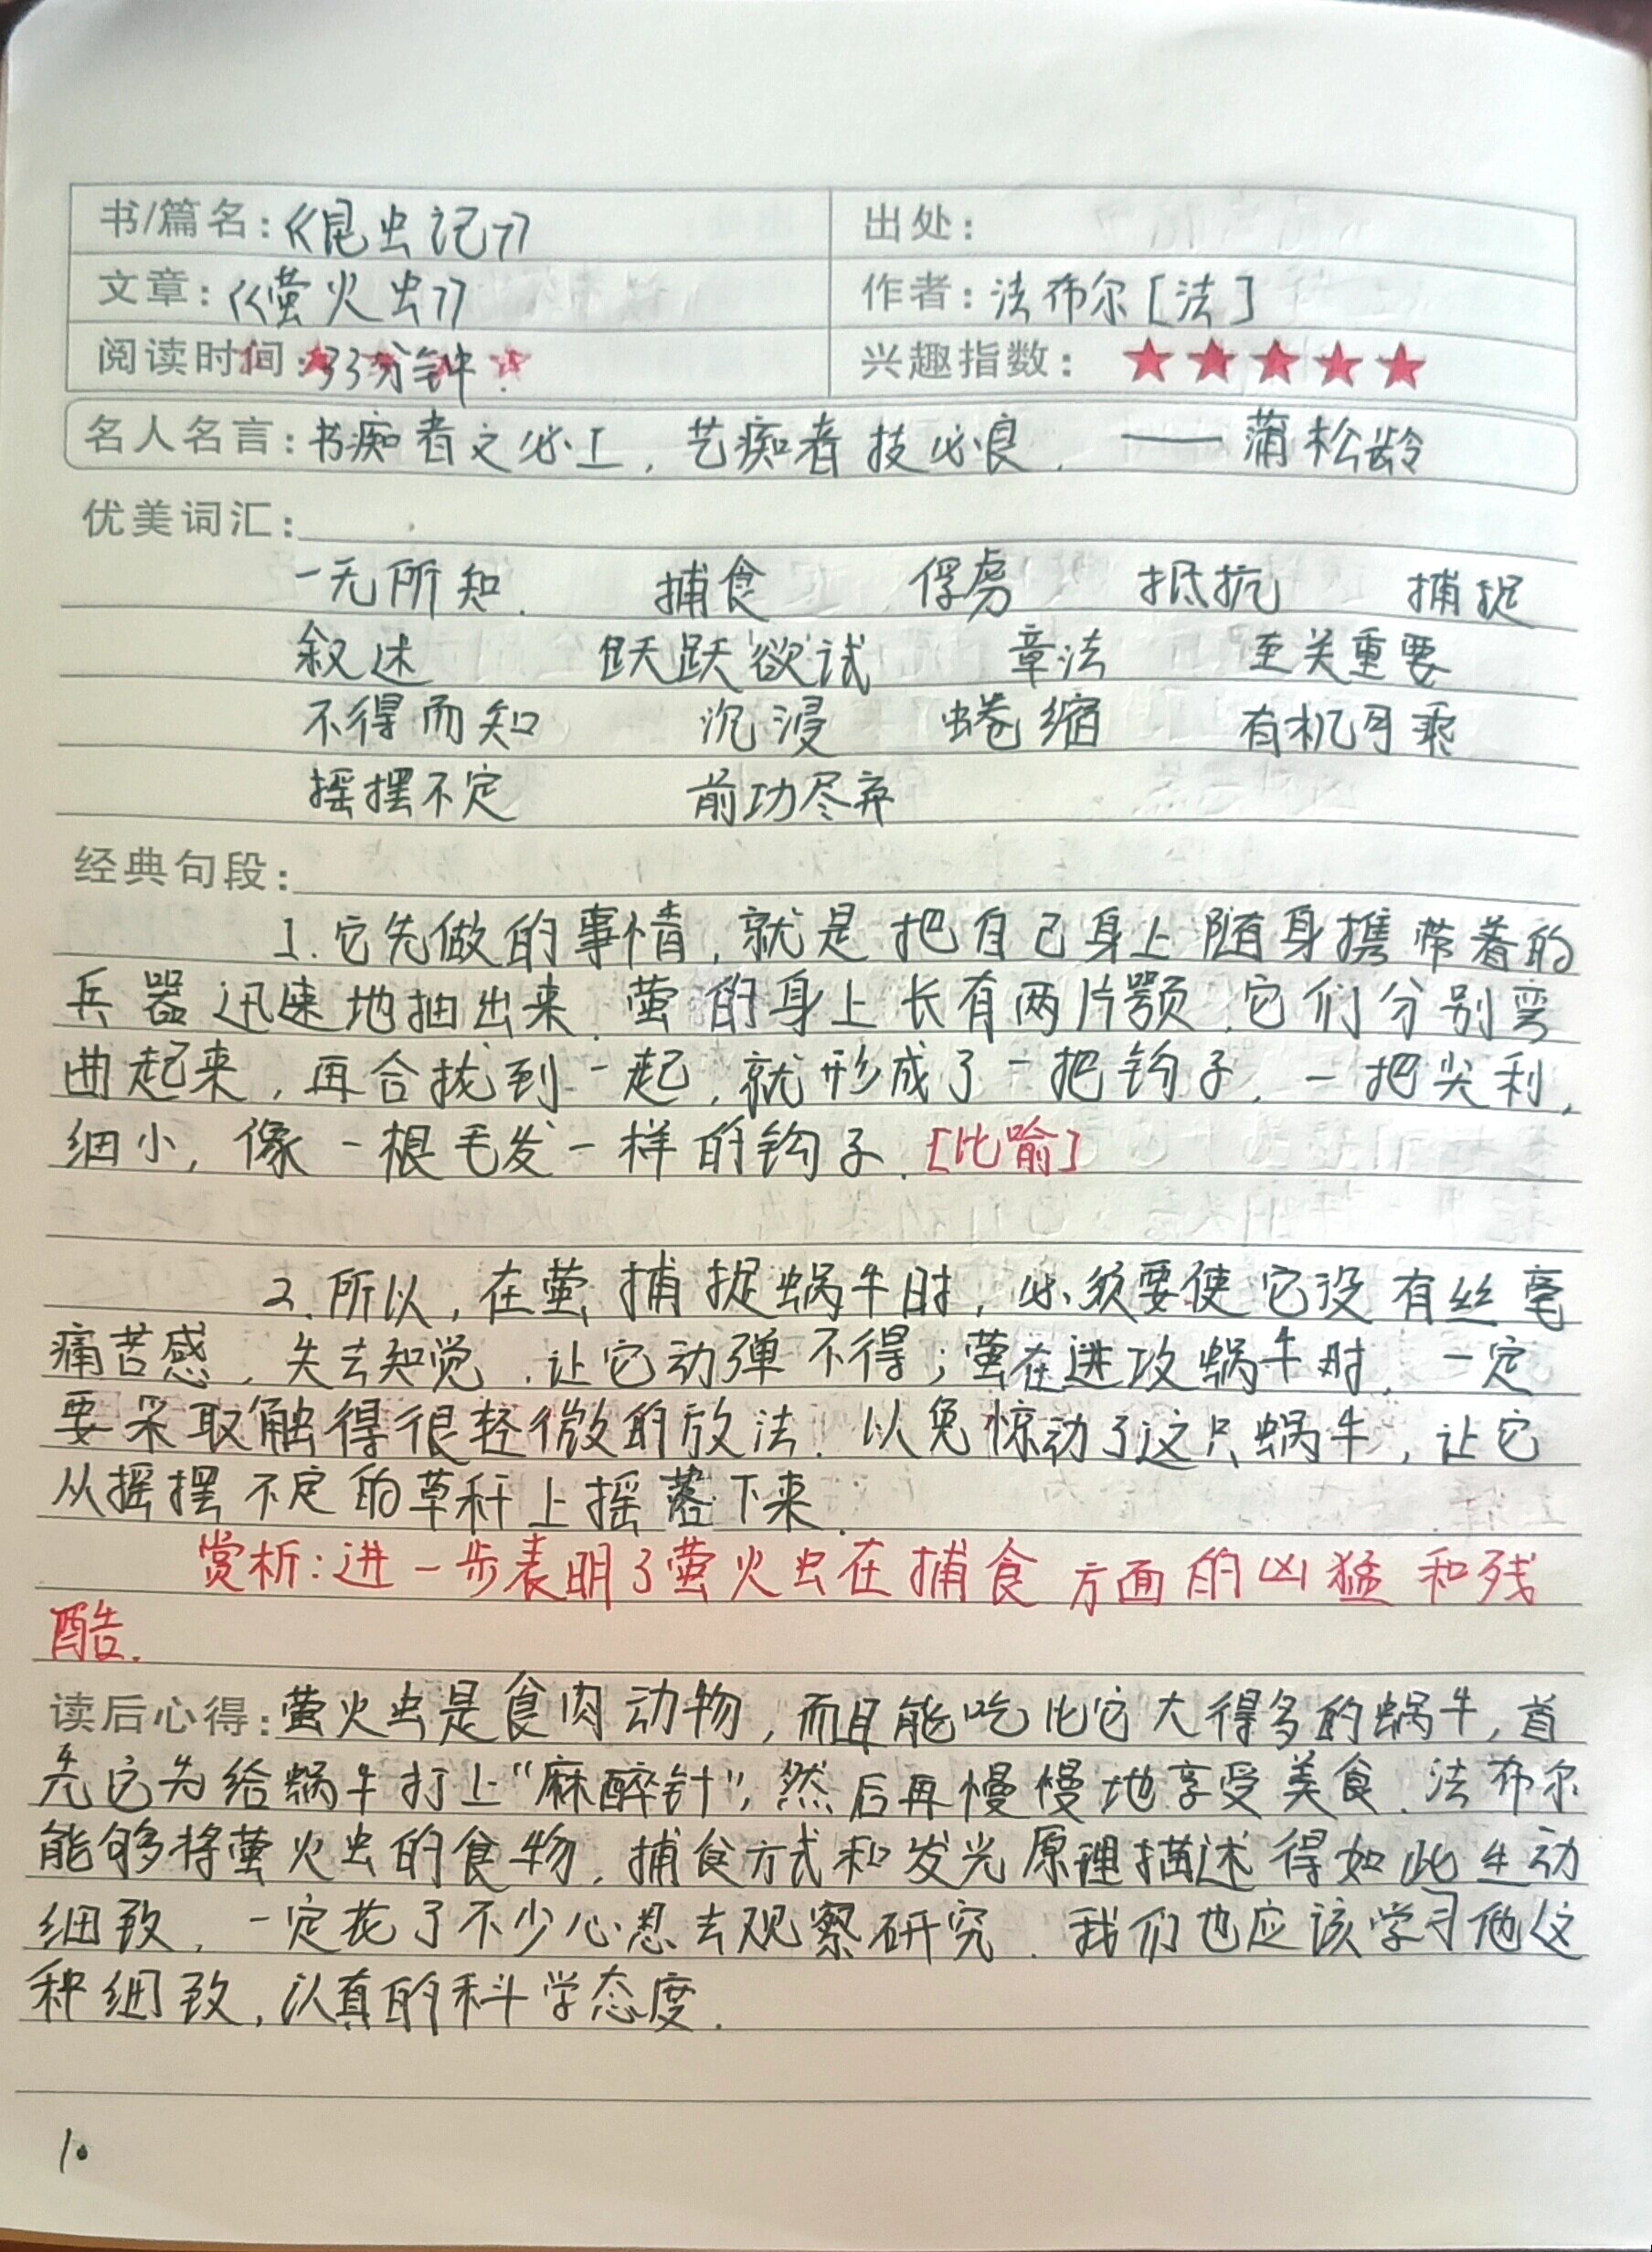 书/篇名：《昆虫记》 出处：
文章：《萤火虫》 作者：法布尔[法]
阅读时间：33分钟. 兴趣指数：★★★★★
名人名言：书痴者文必工，艺痴者技必良. ——蒲松龄
优美词汇：
一无所知. 捕食 俘虏 抵抗 捕捉
叙述 跃跃欲试 章法 至关重要
不得而知 沉浸 蜷缩 有机可乘
摇摆不定 前功尽弃
经典句段：
1.它先做的事情，就是把自己身上随身携带着的
兵器迅速地抽出来.萤的身上长有两片颚.它们分别弯
曲起来，再合拢到一起，就形成了一把钩子，一把尖利，
细小，像一根毛发一样的钩子.[比喻]
2.所以，在萤捕捉蜗牛时，必须要使它没有丝毫
痛苦感，失去知觉，让它动弹不得；萤在进攻蜗牛时，一定
要采取触得很轻微的放法.以免惊动了这只蜗牛，让它
从摇摆不定的草秆上摇落下来.
赏析：进一步表明了萤火虫在捕食方面的凶猛和残
酷.
读后心得：萤火虫是食肉动物，而且能吃比它大得多的蜗牛，首
先它先给蜗牛打上“麻醉针”，然后再慢慢地享受美食.法布尔
能够将萤火虫的食物，捕食方式和发光原理描述得如此生动
细致，一定花了不少心思去观察研究.我们也应该学习他这
种细致，认真的科学态度.
10